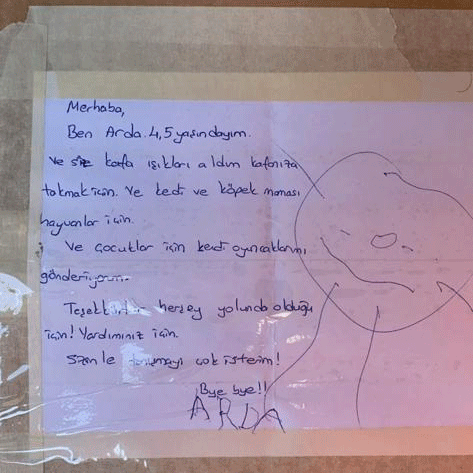 Merhaba,
Ben Arda. 4,5 yaşındayım.
Ve size kafa ışıkları aldım kafanıza
takmak için. Ve kedi ve köpek maması
hayvanlar için.
Ve çocuklar için kendi oyuncaklarımı
gönderiyorum.
Teşekkürler herşey yolunda olduğu
için! Yardımınız için.
Sizinle tanışmayı çok isterim!
Bye bye!!
ARDA